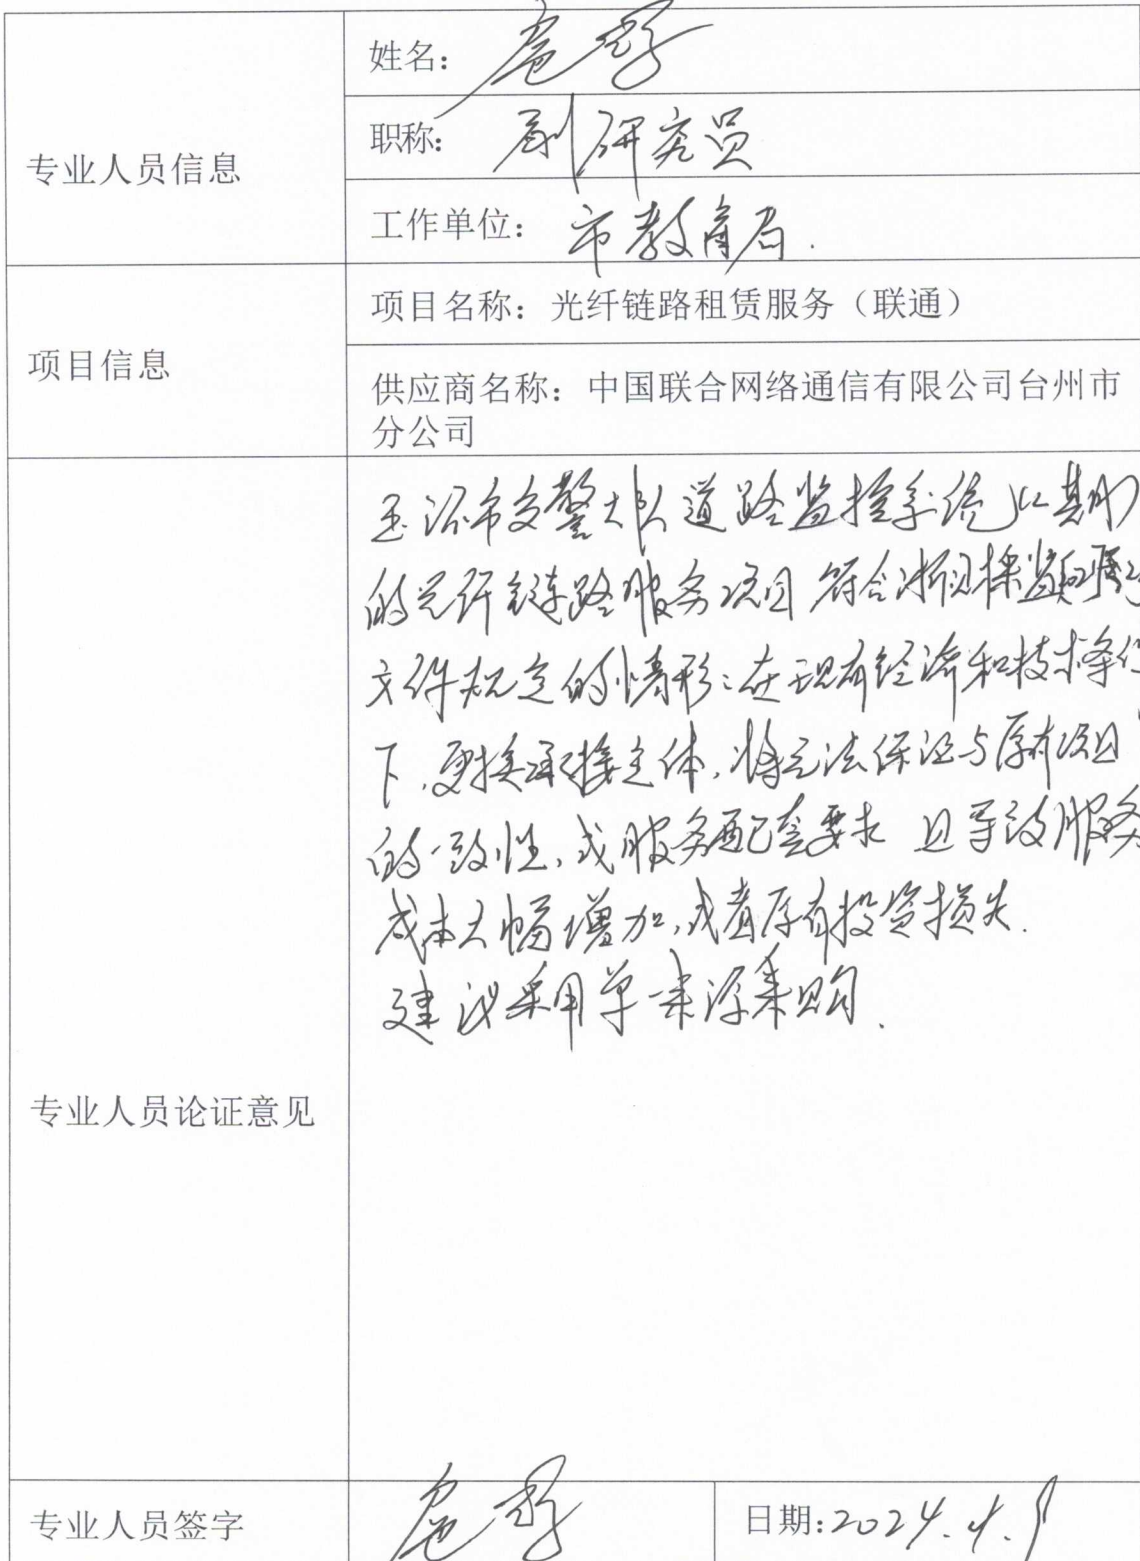 专业人员信息
姓名:
职称: 副研究员
工作单位: 市教育局.
项目信息
项目名称: 光纤链路租赁服务（联通）
供应商名称: 中国联合网络通信有限公司台州市
分公司
专业人员论证意见
玉环市交警大队道路监控系统 期
的光纤链路服务项目 符合浙财采监
文件规定的情形:在现有经济和技术条件
下,更换承接主体,将无法保证与原有项目
的一致性,或服务配套要求 且导致服务
成本大幅增加,或者原有投资损失.
建议采用单一来源采购.
专业人员签字
日期:2024.4.9